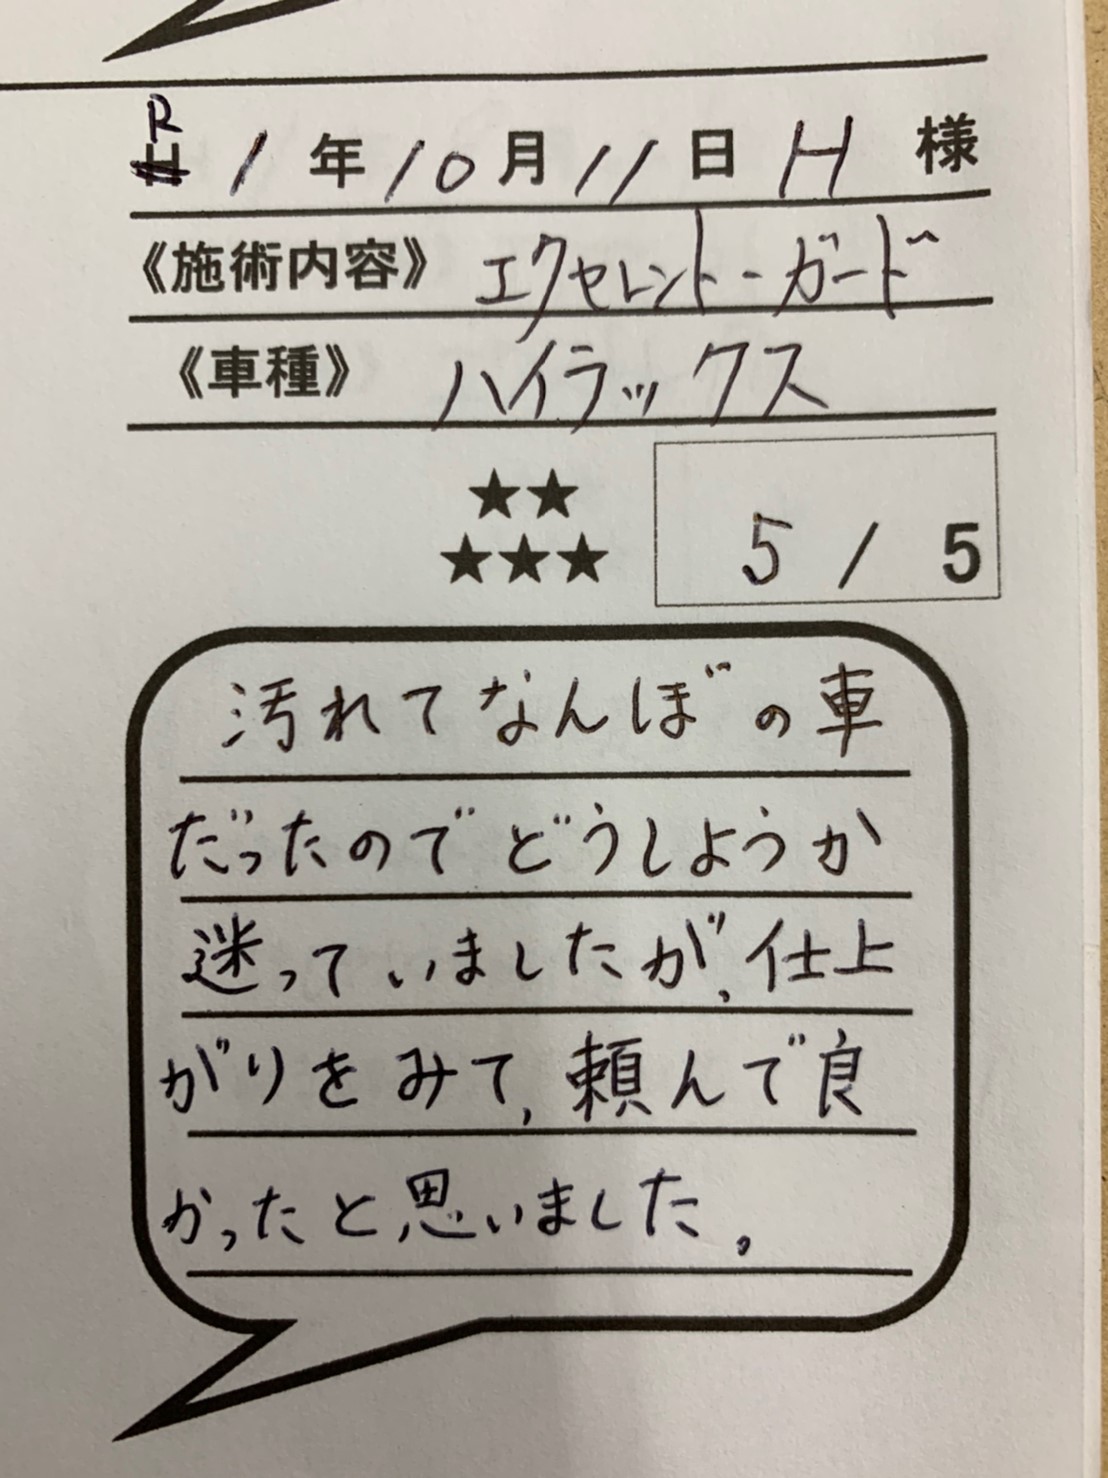 R1年10月11日 H 様
《施術内容》 エクセレント-ガード
《車種》 ハイラックス
★★
★★★
5 / 5
汚れてなんぼの車
だったのでどうしようか
迷っていましたが、仕上
がりをみて、頼んで良
かったと思いました。